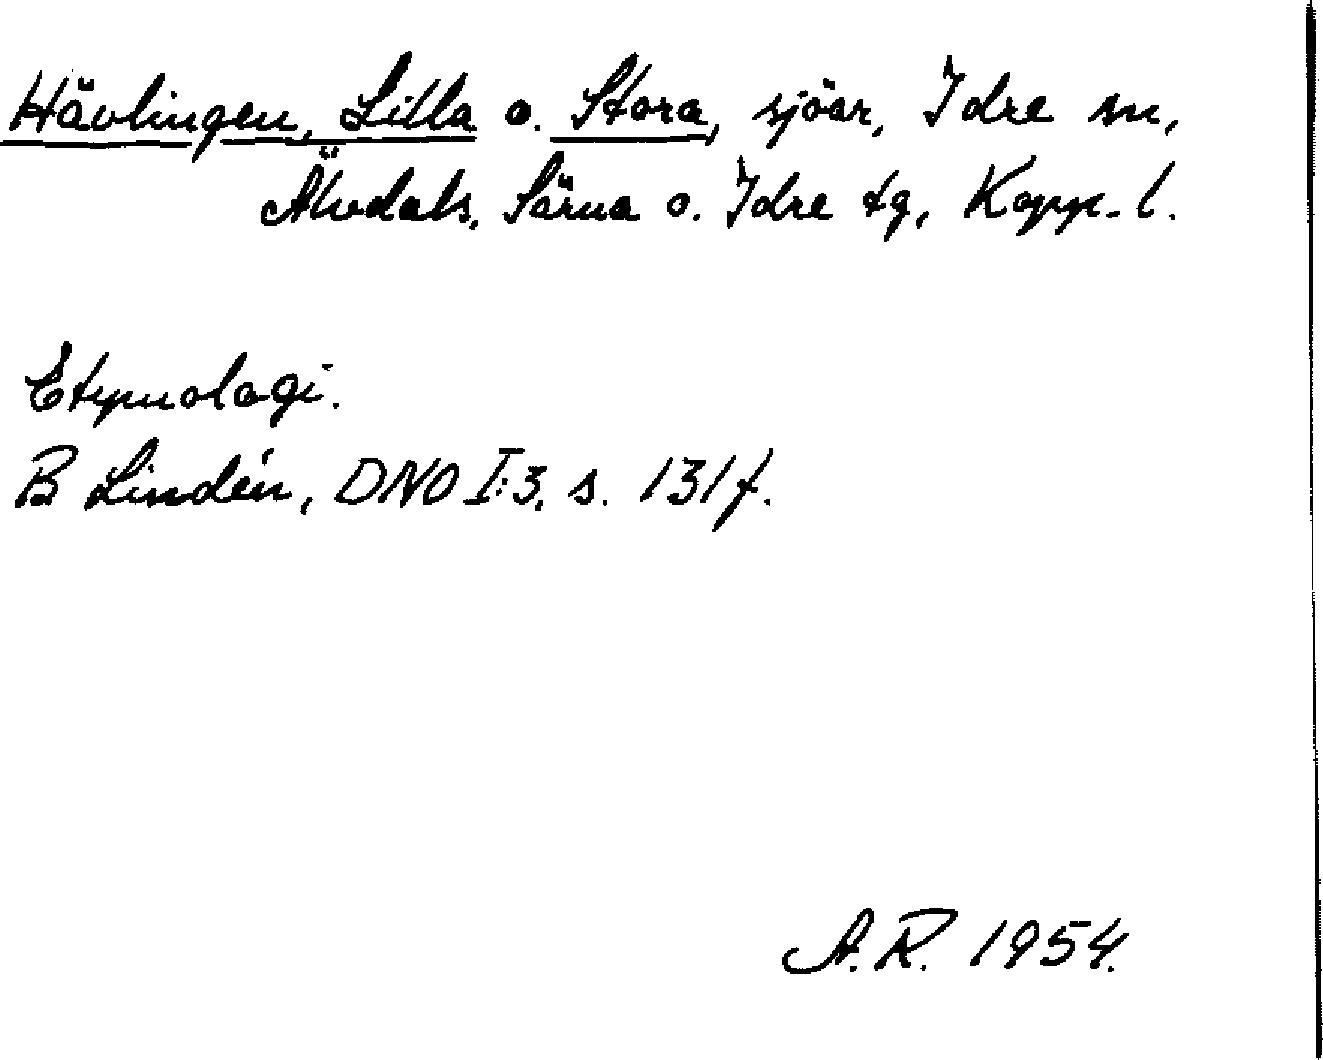 Hävlingen, Lilla o. Stora, sjöar, Idre sn,
Älvdals, Särna o. Idre tg, Kopp. l.
Etymologi.
B Lindén, DNO I:3, s. 131 f.
A.R. 1954.